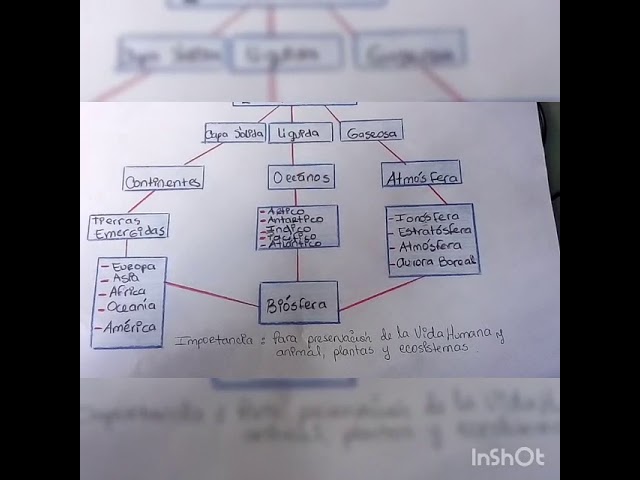 Capa Sólida
Liquida
Gaseosa
Continentes
Oceanos
Atmósfera
Tierras
Emergidas
- Artico
- Antartico
- Indico
- Pacifico
- Atlantico
- Ionósfera
- Estratósfera
- Atmósfera
- aurora Boreal
- Europa
- Asia
- Africa
- Oceanía
- América
Biósfera
Importancia : Para preservación de la Vida Humana y
animal, plantas y ecosistemas.
InShOt